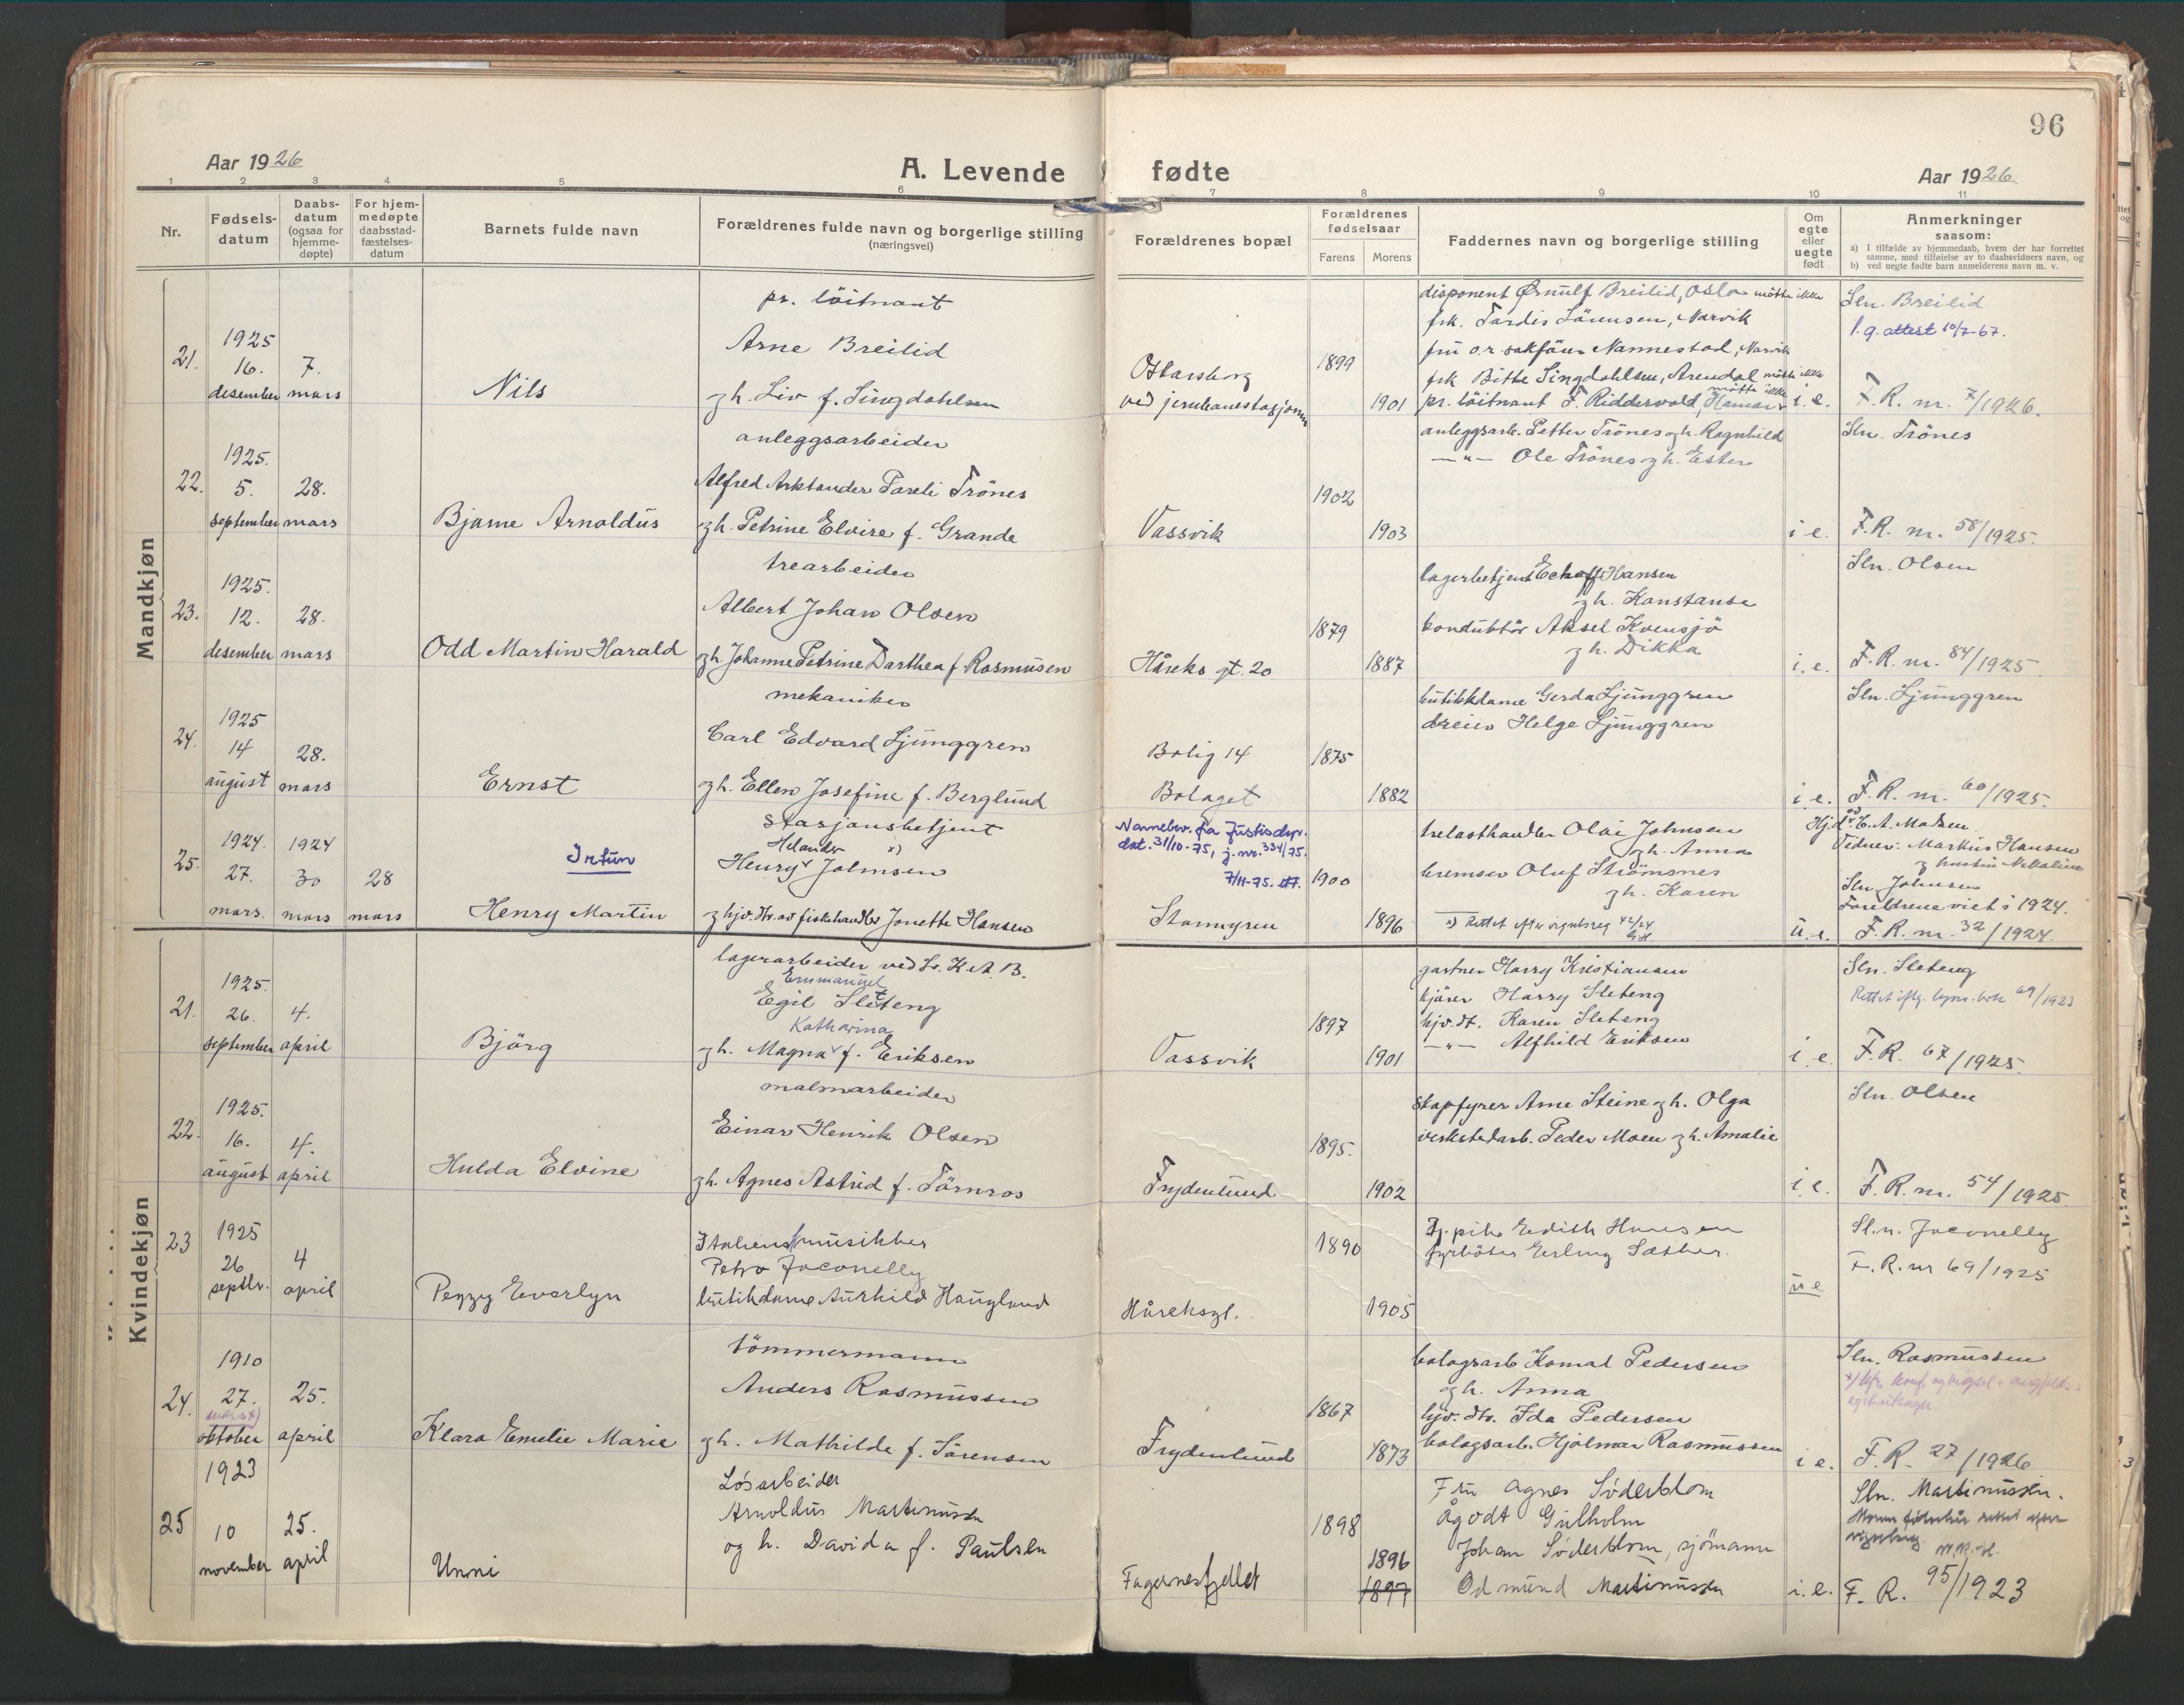 96
Aar 1926
A. Levende fødte
Aar 1926.
1 2 3 4 5 6 7 8 9 10 11
Nr.
Fødsels-
datum
Daabs-
datum
(ogsaa for
hjemme-
døpte)
For hjem-
medøpte
daabsstad-
fæstelses-
datum
Barnets fulde navn
Forældrenes fulde navn og borgerlige stilling
(næringsvei)
Forældrenes bopæl
Forældrenes
fødselsaar
Farens
Morens
Faddernes navn og borgerlige stilling
Om
egte
eller
uegte
født
Anmerkninger
saasom:
a) I tilfælde av hjemmedaab, hvem der har forrettet
samme, med tilføielse av to daabsvidners navn, og
b) ved uegte fødte barn anmelderens navn m. v.
Mandkjøn
21.
1925
16.
desember
7.
mars
Nils
pr. löitnant
Arne Breilid
g h. Liv f. Singdahlsen
Oscarsborg
ved jernbanestasjonen
1899
1901
disponent Ørnulf Breilid, Oslo møtte ikke
frk. Tordis Sörensen, Narvik
fru o.r. sakförer Nannestad, Narvik
frk Bitte Singdahlsen, Arendal møtte ikke
møtte ikke
pr. löitnant F. Riddervold, Hamar
i. e.
Sln. Breilid
l. g. attest 10/7-67.
F. R. nr. 7/1926.
22.
1925.
5.
september
28.
mars
Bjarne Arnoldus
anleggsarbeider
Alfred Arktander Pareli Trönes
g h. Petrine Elvire f. Grande
Vassvik
1902
1903
anleggsarb. Petter Trönes g h. Ragnhild
— " — Ole Trönes g h. Ester
i e.
Sln. Trönes
F. R. nr. 58/1925.
23.
1925.
12.
desember
28.
mars
Odd Martin Harald
trearbeider
Albert Johan Olsen
g h. Johanne Petrine Darthea f. Rasmusen
Håreks gt. 20
1879
1887
lagerbetjent Echoff Hansen
g h. Konstanse
konduktör Aksel Kvensjö
g h. Dikka
i. e.
Sln. Olsen
F. R. nr. 84/1925
24.
1925
14
august
28.
mars
Ernst
mekaniker
Carl Edvard Ljunggren
g h. Ellen Josefine f. Berglund
Bolig 14
Bolaget
1875
1882
butikkdame Gerda Ljunggren
dreier Helge Ljunggren
i. e.
Sln. Ljunggren
F. R. nr. 60/1925.
25.
1924.
27.
mars.
1924
30
mars
28
mars
Irtun
Henry Martin
stasjonsbetjent
Helander x)
Henry Johnsen
g hjv. dtr. av fiskehandler Jonette Hansen
Navnebev. fra Justisdep.
dat. 31/10-75, j. nr. 334/75.
7/11-75.
Stannyren
1900
1896
trelasthandler Olai Johnsen
g h. Anna
bremser Oluf Strömsnes
g h. Karen
x) Rettet efter vigselsreg 42/24
u. e.
Hj.d. v. E. A. Madsen.
Vidner: Markus Hansen
g hustru Nikoline
Sln. Johnsen
Foreldrene viet i 1924.
F. R. nr. 32/1924.
Kvindekjøn
21.
1925.
26.
september
4.
april
Björg
lagerarbeider ved L. K. A. B.
Emmanuel
Egil Sletteng
Katharina
g h. Magna f. Eriksen
Vassvik
1897
1901
gartner Harry Kristiansen
kjörer Harry Sleteng
hjv. dt. Karen Sleteng
— " — Alfhild Eriksen
i. e.
Sln. Sleteng
F. R. 67/1925.
22.
1925.
16.
august
4.
april
Hulda Elvine
malmarbeider
Einar Henrik Olsen
g h. Agnes Astrid f. Törnros
Frydenlund
1895.
1902
Skapfyrer Arne Steine g h. Olga
verkstedarb. Peder Moen g h. Amalie
i. e.
Sln. Olsen
F. R. nr. 54/1925.
23
1925
26
septbr.
4
april
Peggy Everlyn
Italiensk musikker
Petro Joconelly
butikdame Aurhild Hauglund
Håreksgt.
1890
1905
Tj. pike Edith Hansen
fyrböter Erling Sæther.
u e
Sln. Joconelly
F. R. nr 69/1925
24.
1910
27.
mars x)
oktober
25.
april
Klara Emelie Marie
tömmermann
Anders Rasmussen
g h. Mathilde f. Sörensen
Frydenlund
1867
1873
bolagsarb Komal Pedersen
g h. Anna
hjv. dtr. Ida Pedersen
bolagsarb. Hjalmar Rasmussen
i e.
Sln. Rasmussen
F. R. 27/1926
25
1923
10
november
25.
april
Unni
Løsarbeider
Arnoldus Martinussen
og h. Davida f. Paulsen
Fagernesfjellet
1898
1896
1897
Fru Agnes Søderblom
Ågodt Gulholm
Johan Søderblom, sjömann
Odmund Martinussen
i. e.
Sln. Martinussen.
Morens fødselsår rettet efter
vigselreg.
F. R. 95/1923